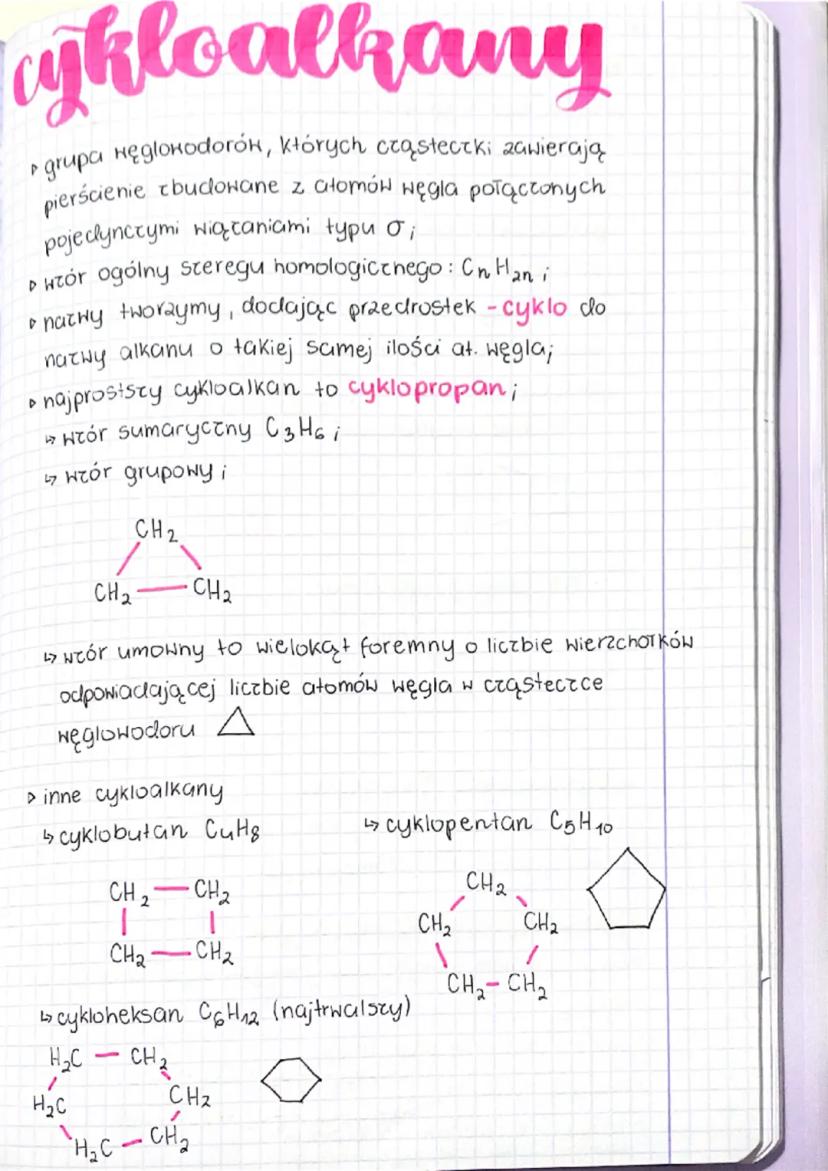 cykloalkany
▹ grupa węglowodorów, których cząsteczki zawierają
pierścienie zbudowane z atomów węgla połączonych
pojedynczymi wiązaniami typu σ;
▹ wzór ogólny szeregu homologicznego: CnH2n;
▹ nazwy tworzymy, dodając przedrostek -cyklo do
nazwy alkanu o takiej samej ilości at. węgla;
▹ najprostszy cykloalkan to cyklopropan;
↳ wzór sumaryczny C3H6;
↳ wzór grupowy;
CH2
CH2 — CH2
↳ wzór umowny to wielokąt foremny o liczbie wierzchołków
odpowiadającej liczbie atomów węgla w cząsteczce
węglowodoru △
▹ inne cykloalkany
↳ cyklobutan C4H8
CH2 — CH2
CH2 — CH2
↳ cyklopentan C5H10
CH2
CH2 CH2
CH2 - CH2
↳ cykloheksan C6H12 (najtrwalszy)
H2C — CH2
H2C CH2
H2C — CH2